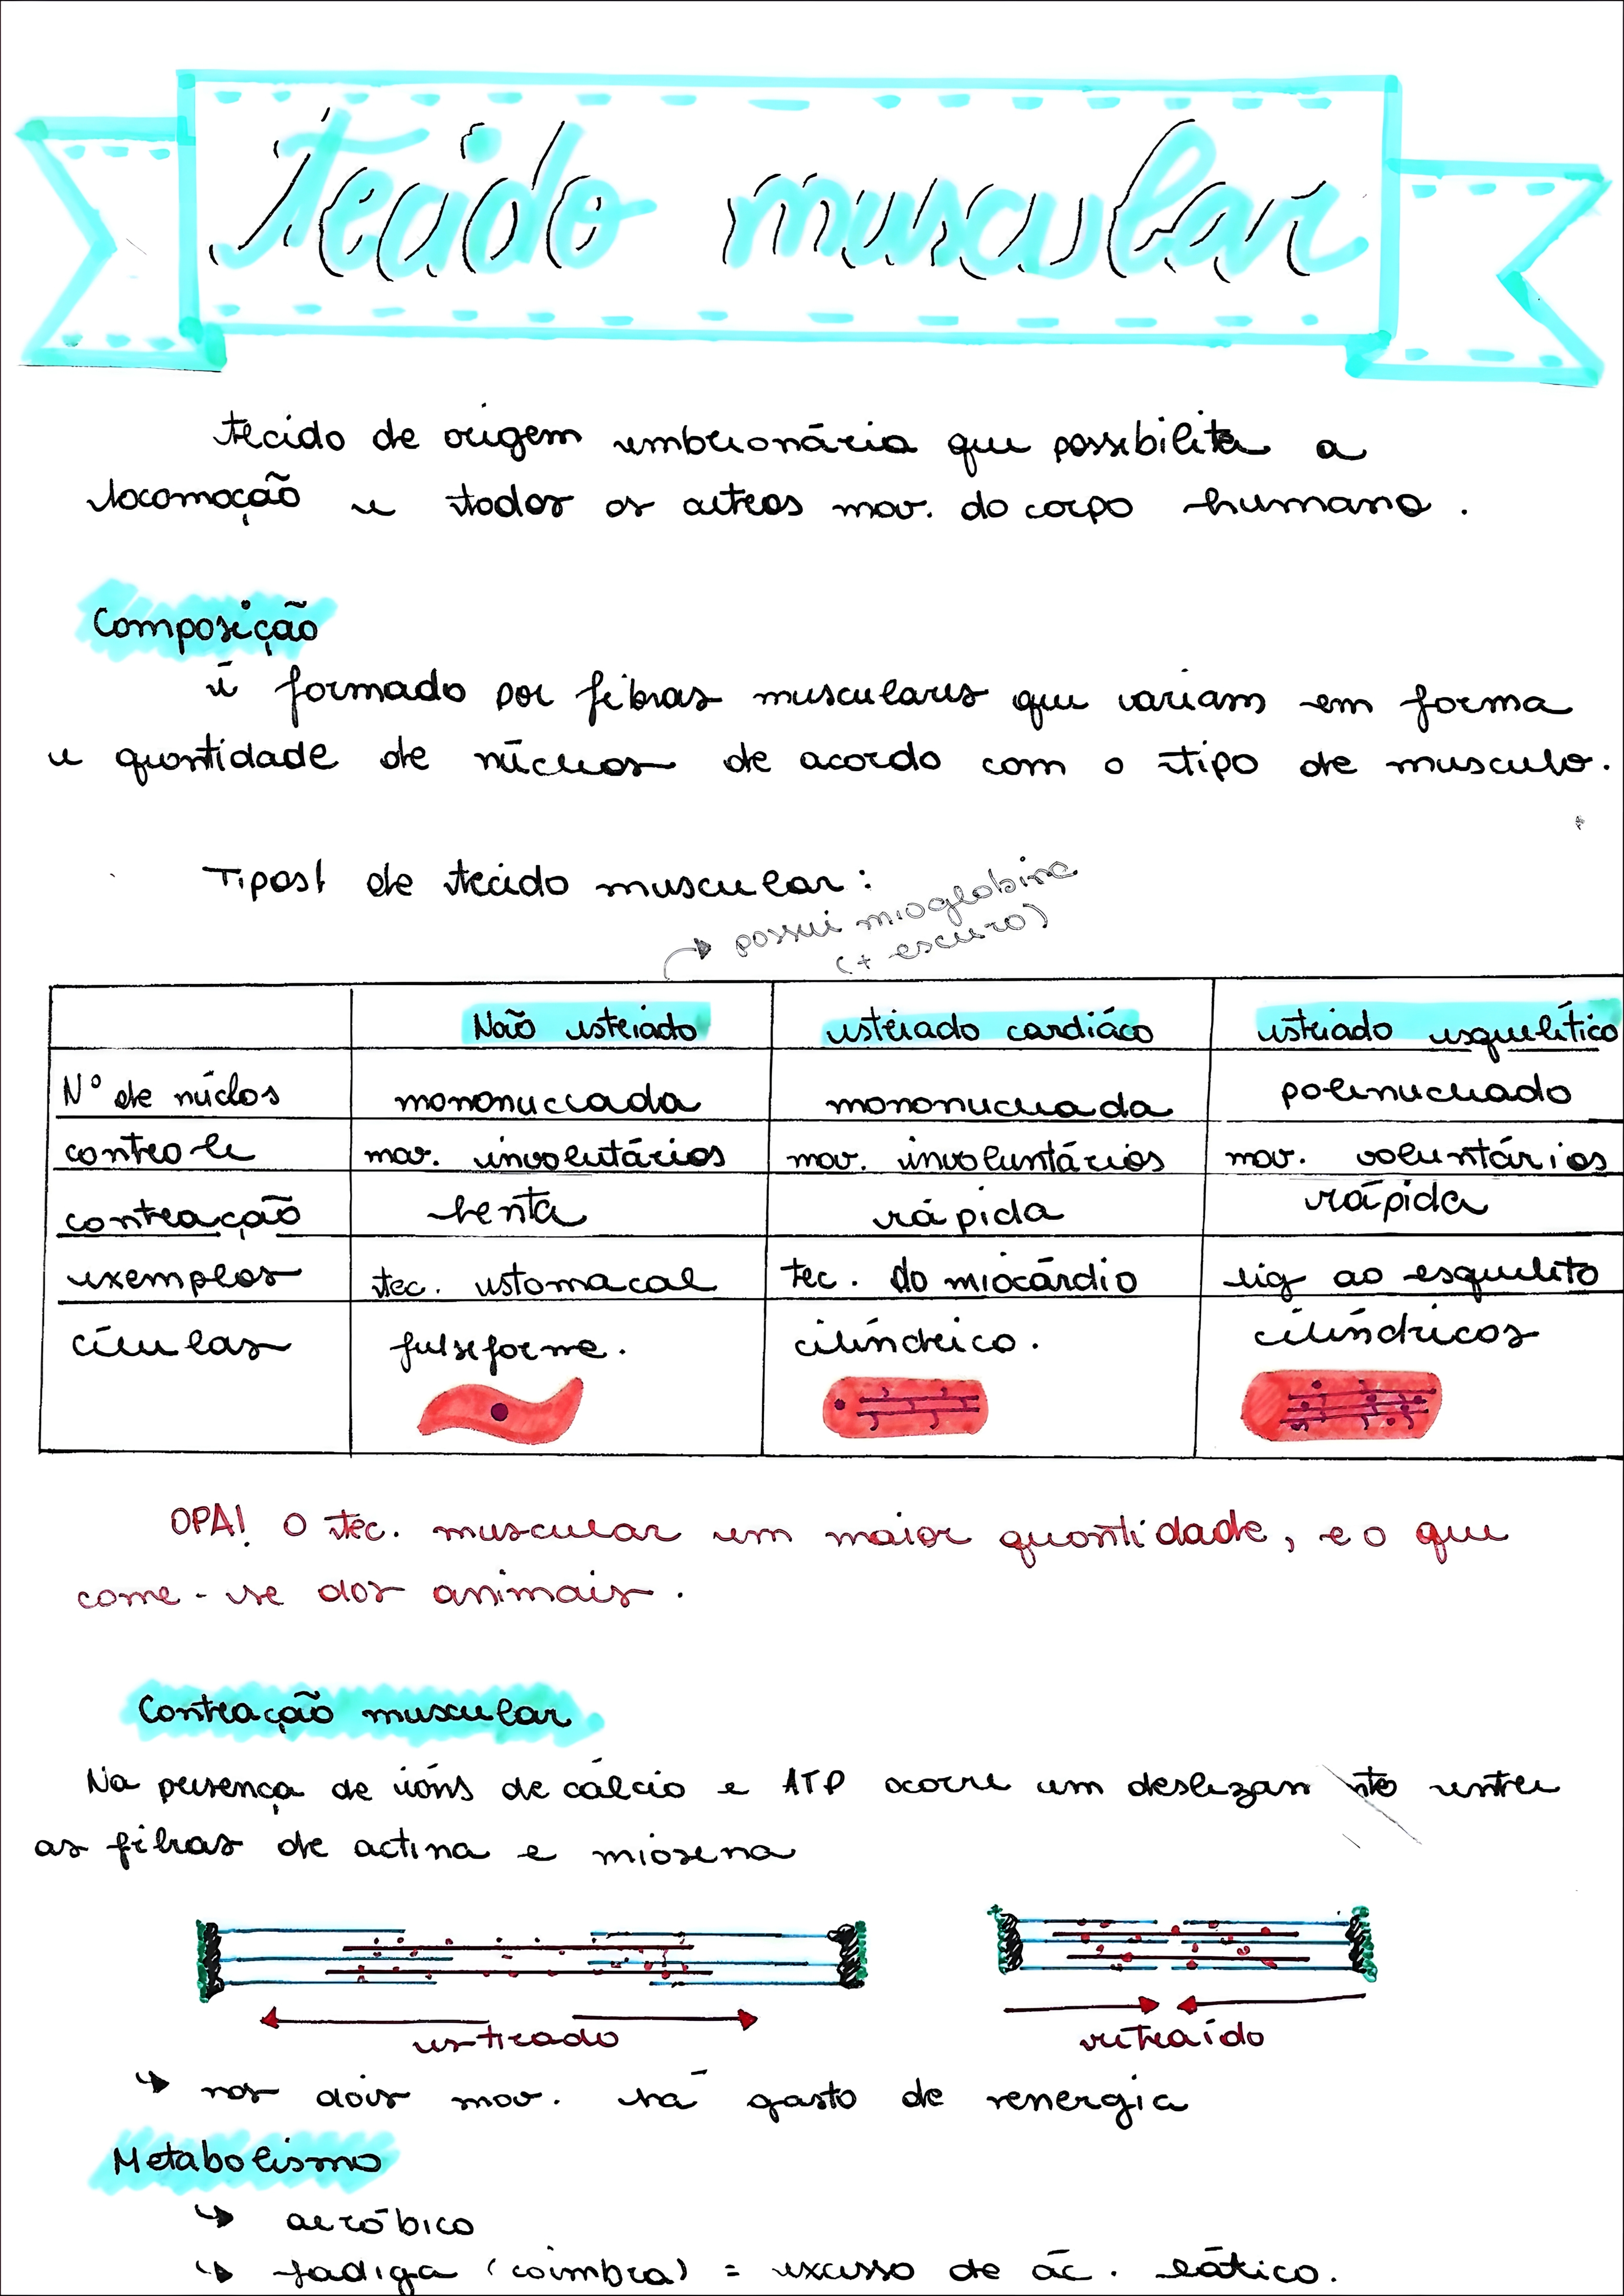 tecido muscular
tecido de origem embrionária que possibilita a
locomoção e todos os outros mov. do corpo humano.
Composição
é formado por fibras musculares que variam em forma
e quantidade de núcleos de acordo com o tipo de musculo.
Tipos de tecido muscular:
possui mioglobina
(+ escuro)
Não estriado estriado cardiáco estriado esquelético
Nº de núclos mononuccada mononucleada polinucleado
controle mov. involutários mov. involuntários mov. voluntários
contração lenta rápida rápida
exemplos tec. estomacal tec. do miocárdio lig ao esqueleto
células fulseforme. cilíndrico. cilíndricos
OPA! O tec. muscular em maior quantidade, e o que
come-se dos animais.
Contração muscular
Na presença de íons de cálcio e ATP ocorre um deslizan nto entre
as fibras de actina e miosena
esticado retraído
nos dois mov. há gasto de energia
Metabolismo
aeróbico
fadiga (coimbra) = excesso de ác. lático.